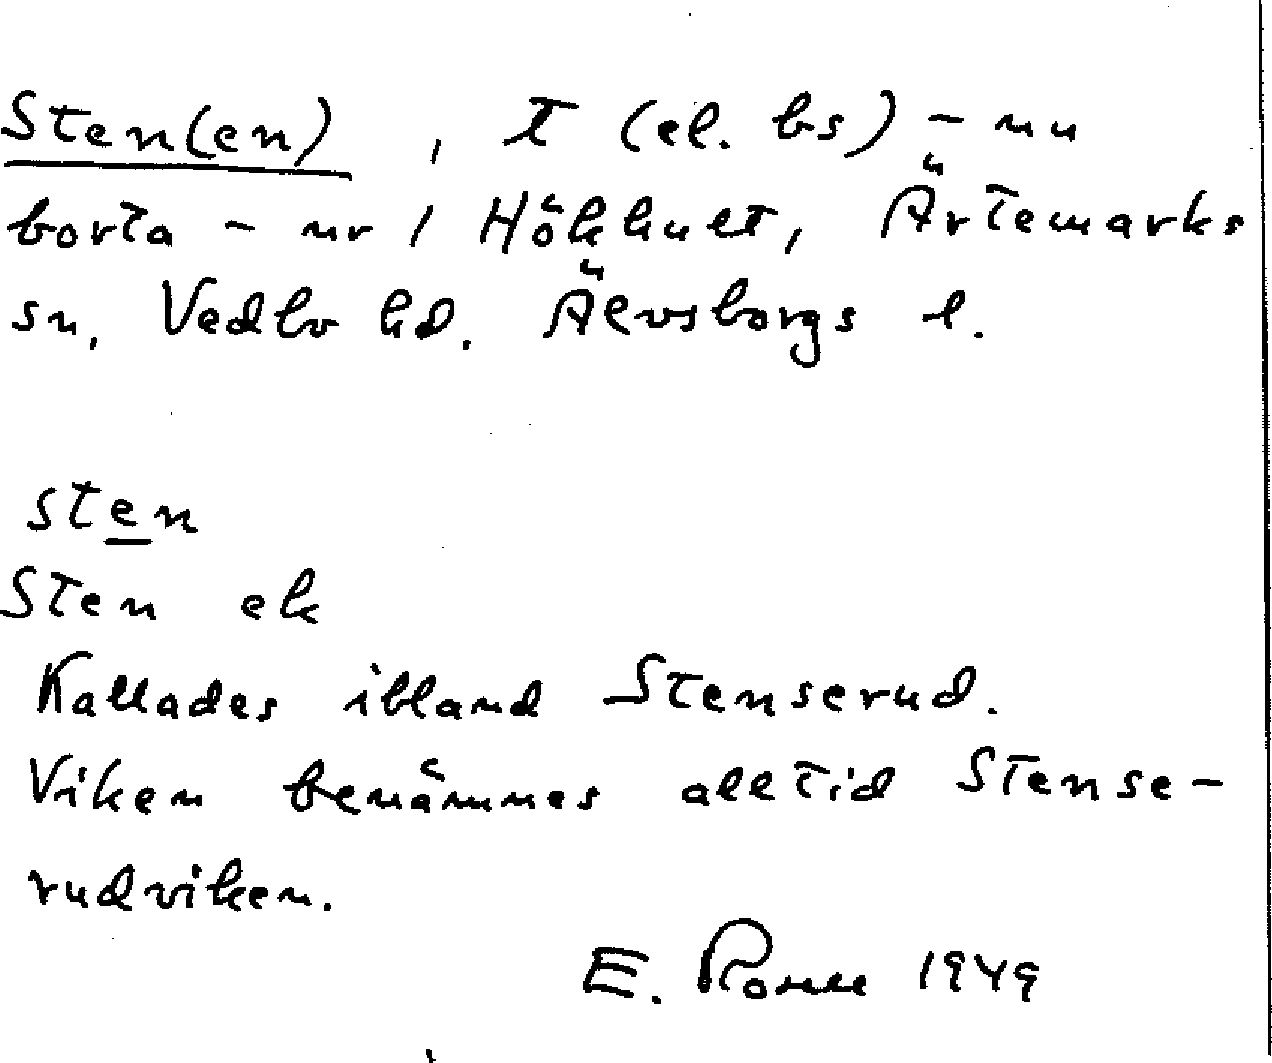 Sten(en), t (el. bs) - nu
borta - nr 1 Hökhult, Ärtemarks
sn, Vedbo hd. Älvsborgs l.
sten
Sten ek
Kallades ibland Stenserud.
Viken benämnes alltid Stense-
rudviken.
E. 1949